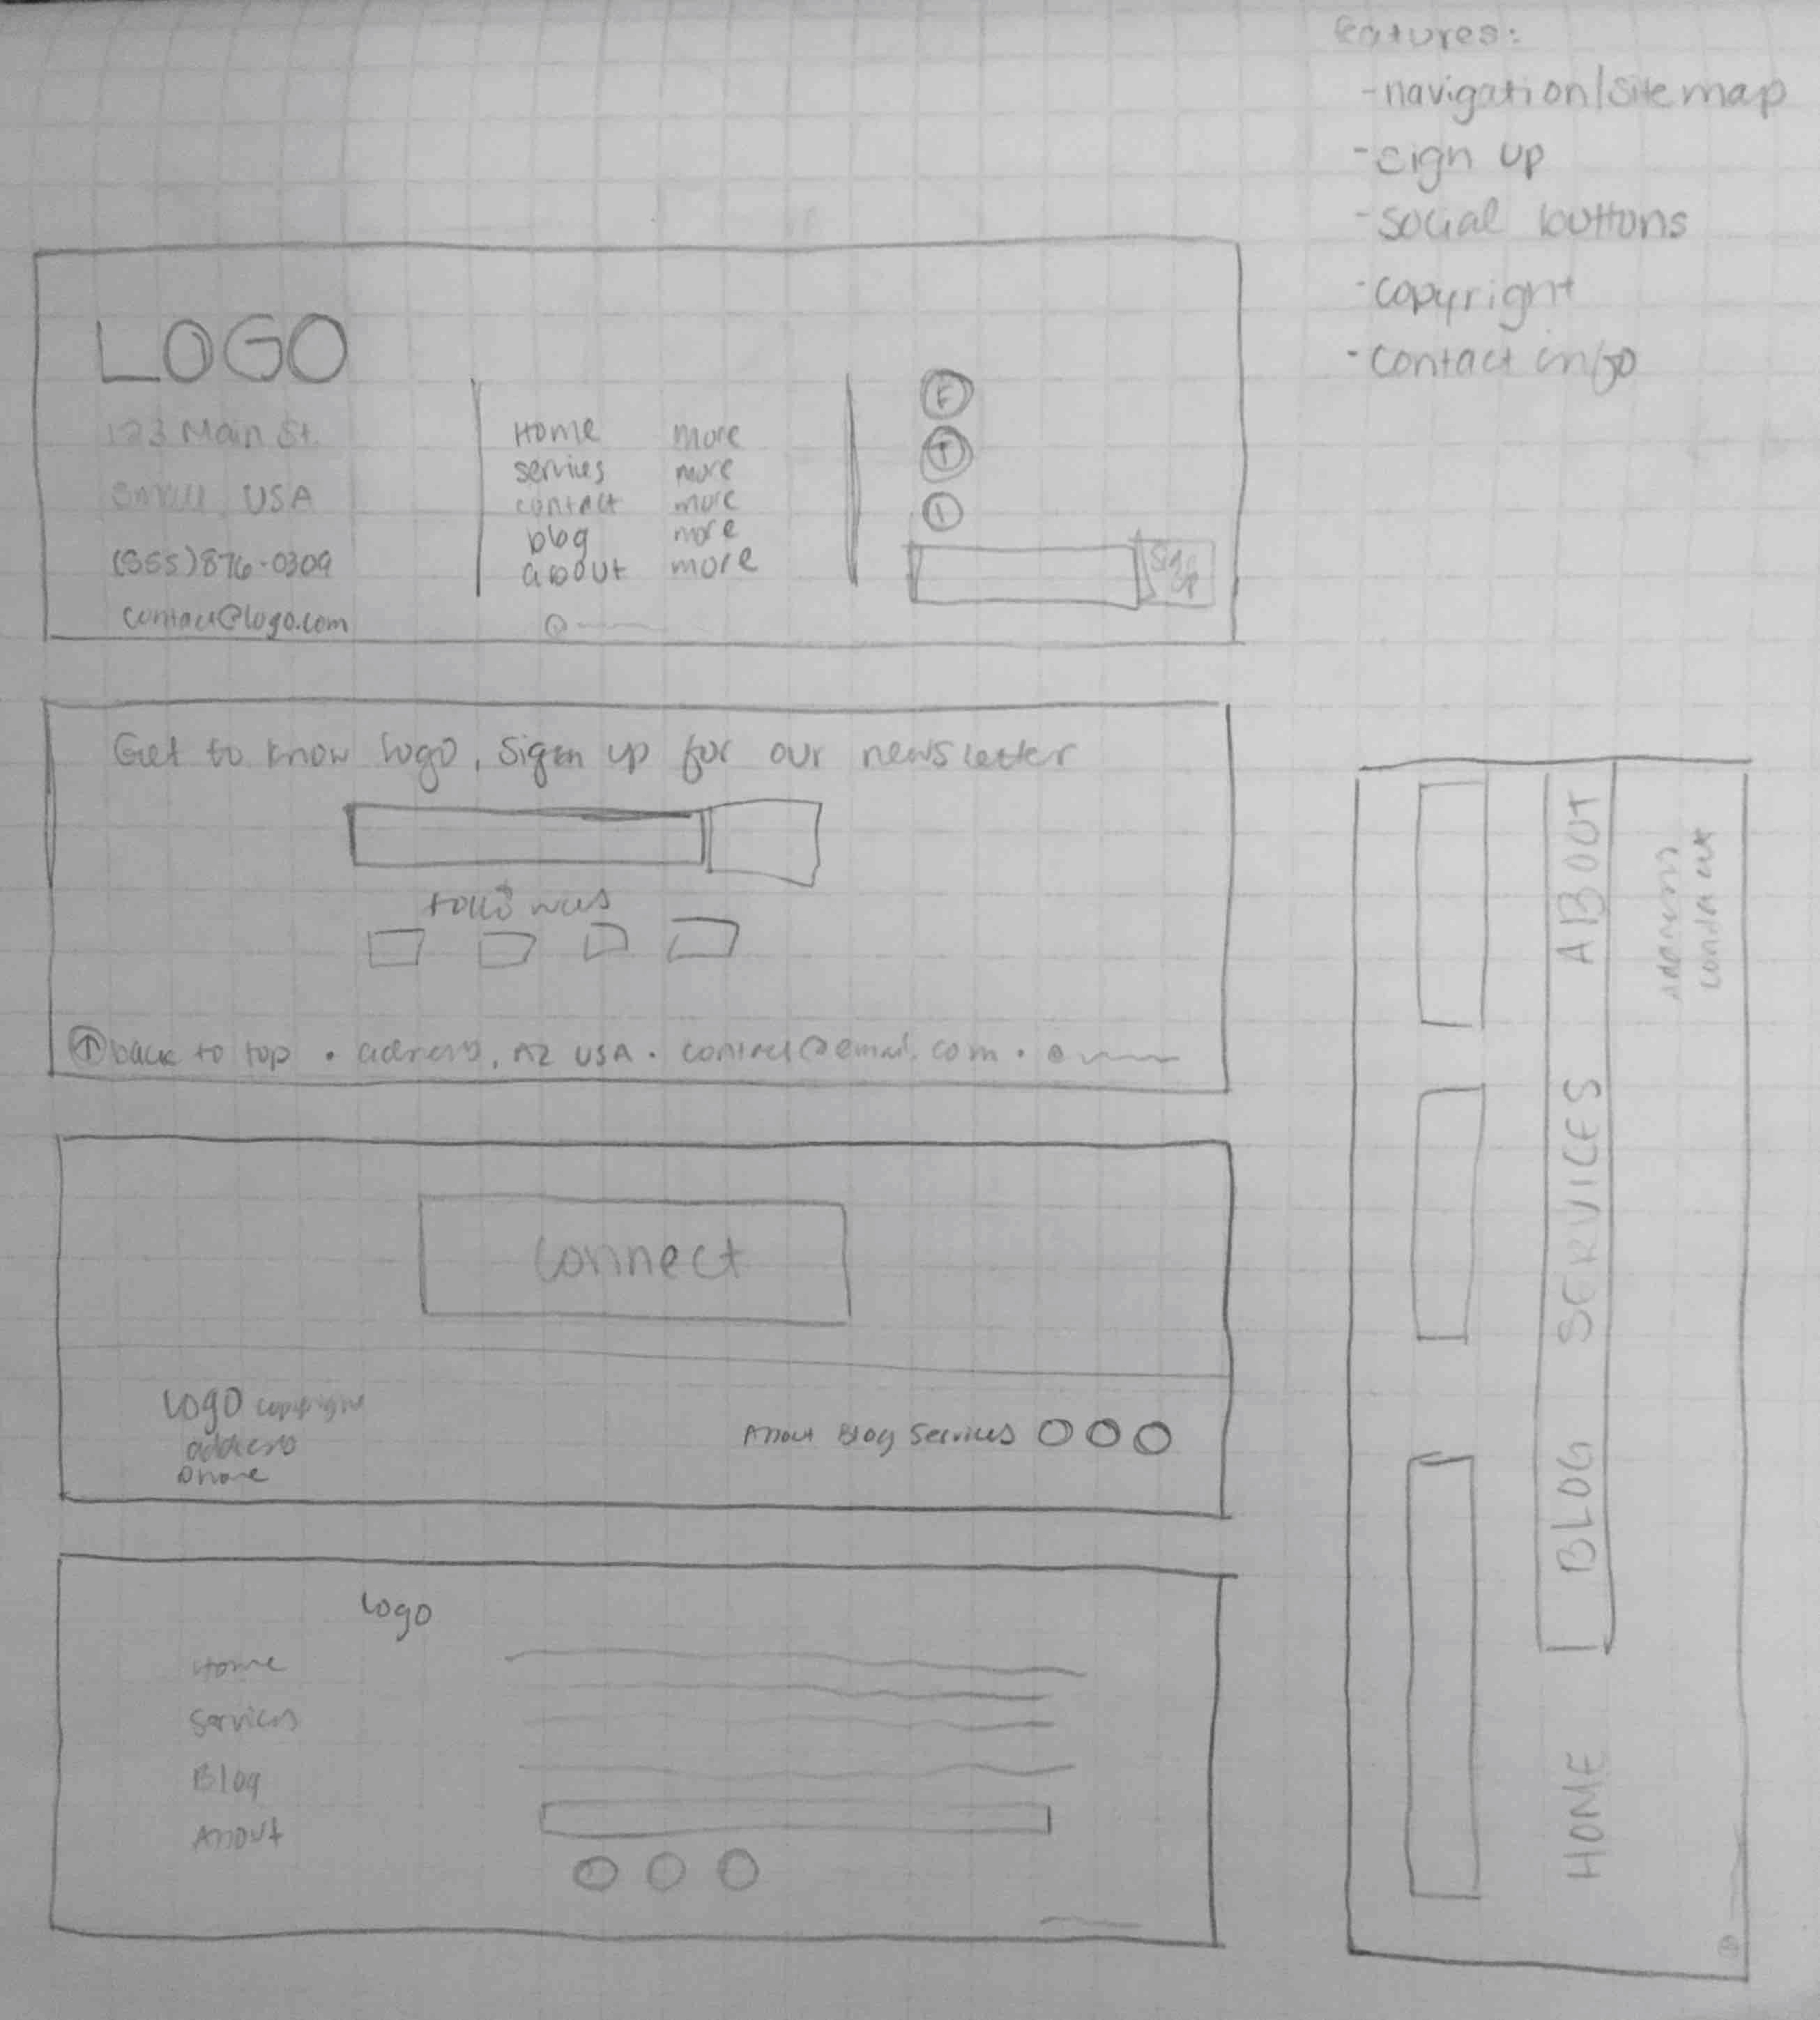 features:
-navigation/sitemap
-sign up
-social buttons
-copyright
-contact info
LOGO
123 Main St.
Small, USA
(555)876-0309
contact@logo.com
Home more
services more
contact more
blog more
about more
F
T
I
Sign up
Get to know logo, Sign up for our newsletter
back to top • address, AZ USA • contact@email.com •
connect
Logo copyright
address
phone
About Blog Services
Logo
Home
Services
Blog
About
HOME BLOG SERVICES ABOUT
Address
contact